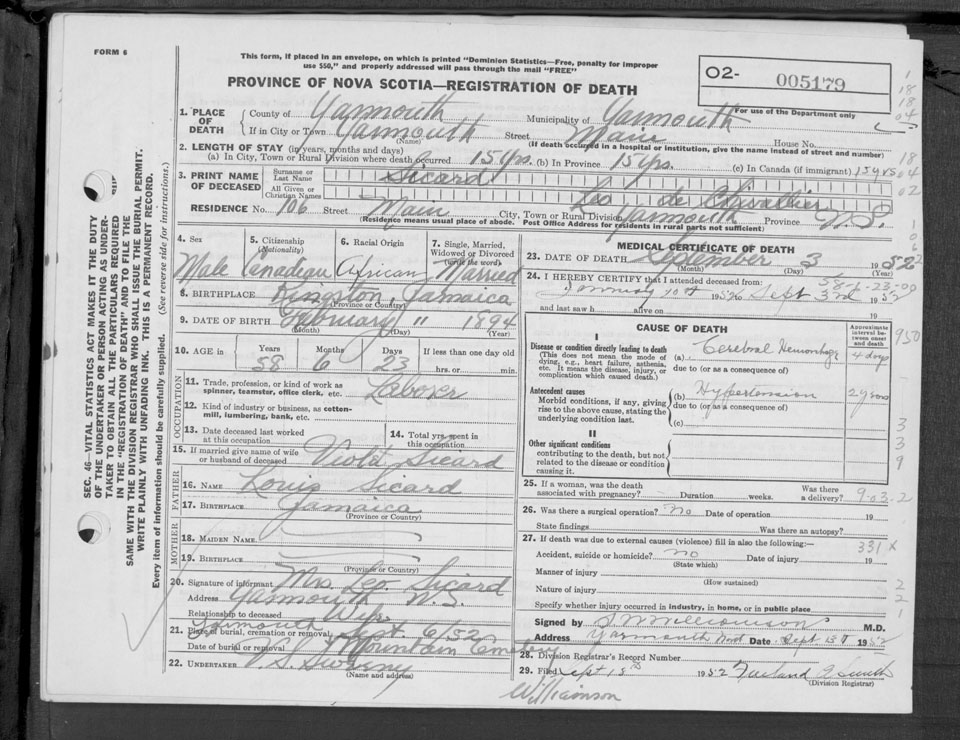 FORM 6
This form, if placed in an envelope, on which is printed "Dominion Statistics—Free, penalty for improper
use $50," and properly addressed will pass through the mail "FREE"
PROVINCE OF NOVA SCOTIA—REGISTRATION OF DEATH
O2- 005179
For use of the Department only
1. PLACE OF DEATH
County of Yarmouth Municipality of Yarmouth
If in City or Town Yarmouth Street Main House No.
(Name) (If death occurred in a hospital or institution, give the name instead of street and number)
2. LENGTH OF STAY (in years, months and days)
(a) In City, Town or Rural Division where death occurred 15 yrs. (b) In Province 15 yrs. (c) In Canada (if immigrant) 15 yrs
3. PRINT NAME OF DECEASED
Surname or Last Name Sicard
All Given or Christian Names Leo de
RESIDENCE No. 106 Street Main City, Town or Rural Division Yarmouth Province N.S.
(Residence means usual place of abode. Post Office Address for residents in rural parts not sufficient)
4. Sex Male
5. Citizenship (Nationality) Canadian
6. Racial Origin African
7. Single, Married, Widowed or Divorced (write the word) Married
8. BIRTHPLACE Kingston, Jamaica
(Province or Country)
9. DATE OF BIRTH February 11 1894
(Month) (Day) (Year)
10. AGE in Years 58 Months 6 Days 23 If less than one day old
hrs. or min.
OCCUPATION
11. Trade, profession, or kind of work as
spinner, teamster, office clerk, etc. Laborer
12. Kind of industry or business, as cotten-
mill, lumbering, bank, etc.
13. Date deceased last worked
at this occupation
14. Total yrs. spent in
this occupation
15. If married give name of wife
or husband of deceased Viola Sicard
FATHER
16. NAME Louis Sicard
17. BIRTHPLACE Jamaica
(Province or Country)
MOTHER
18. MAIDEN NAME
19. BIRTHPLACE
(Province or Country)
20. Signature of informant Mrs. Leo Sicard
Address Yarmouth N.S.
Relationship to deceased Wife
21. Place of burial, cremation or removal Yarmouth
Date of burial or removal Sept. 6/52 Mountain Cemetery
22. UNDERTAKER V.S. Sweeny
(Name and address)
MEDICAL CERTIFICATE OF DEATH
23. DATE OF DEATH September 3 1952
(Month) (Day) (Year)
24. I HEREBY CERTIFY that I attended deceased from
58-6-23-09
January 10th 1952 to Sept 3rd 1952
and last saw h alive on 19
CAUSE OF DEATH
Approximate interval between onset and death
I
Disease or condition directly leading to death
(This does not mean the mode of dying, e.g., heart failure, asthenia, etc. It means the disease, injury, or complication which caused death.)
(a) Cerebral Hemorrhage 4 days
due to (or as a consequence of)
Antecedent causes
Morbid conditions, if any, giving rise to the above cause, stating the underlying condition last.
(b) Hypertension 2 years
due to (or as a consequence of)
(c)
II
Other significant conditions
contributing to the death, but not related to the disease or condition causing it.
25. If a woman, was the death
associated with pregnancy? Duration weeks. Was there a delivery? 903.2
26. Was there a surgical operation? No Date of operation 19
State findings Was there an autopsy?
27. If death was due to external causes (violence) fill in also the following:— 331 X
Accident, suicide or homicide? no Date of injury 19
(State which)
Manner of injury
(How sustained)
Nature of injury
Specify whether injury occurred in industry, in home, or in public place
Signed by Williamson M.D.
Address Yarmouth Date Sept 13 1952
28. Division Registrar's Record Number
29. Filed Sept 15th 1952 Smith
(Division Registrar)
Williamson
950
SEC. 46—VITAL STATISTICS ACT MAKES IT THE DUTY
OF THE UNDERTAKER OR PERSON ACTING AS UNDER-
TAKER TO OBTAIN ALL THE PARTICULARS REQUIRED
IN THE "REGISTRATION OF DEATH" AND TO FILE THE
SAME WITH THE DIVISION REGISTRAR WHO SHALL ISSUE THE BURIAL PERMIT.
WRITE PLAINLY WITH UNFADING INK. THIS IS A PERMANENT RECORD.
Every item of information should be carefully supplied. (See reverse side for instructions.)